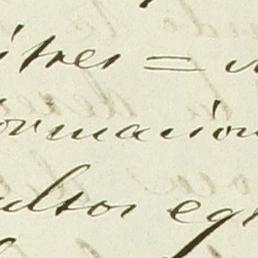 tres =
ormacion
ultos egr